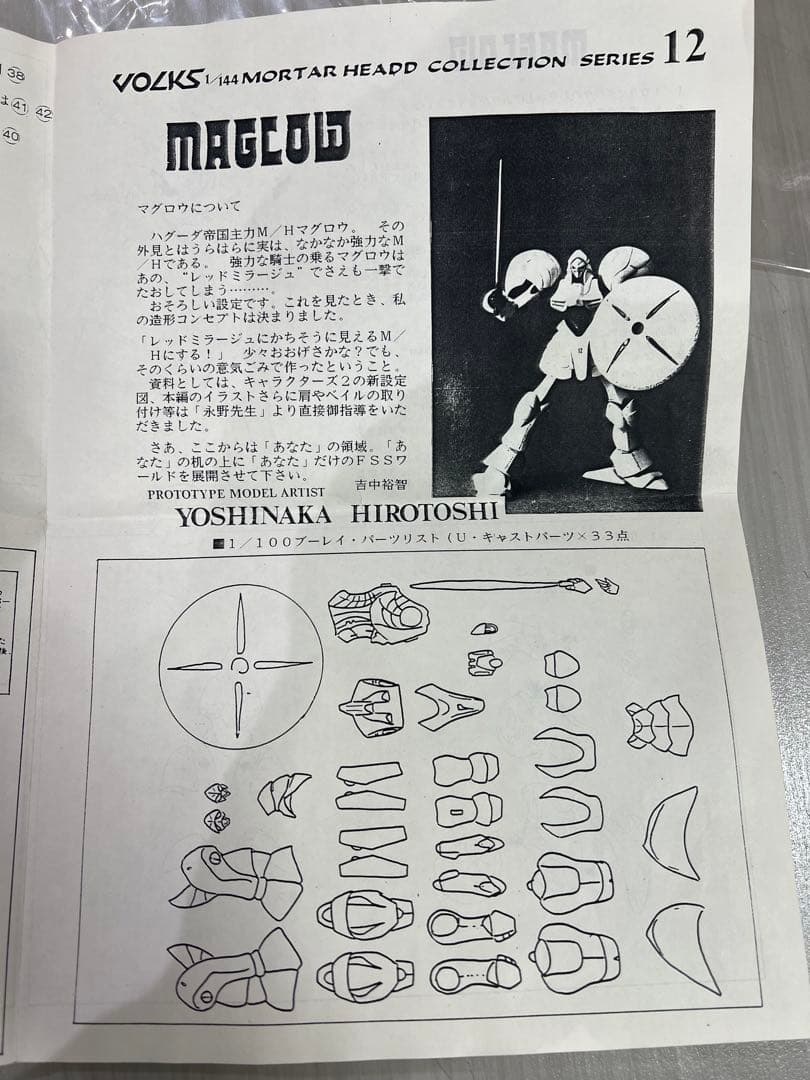 38
は41 42
40
VOLKS 1/144 MORTAR HEADD COLLECTION SERIES 12
MAGLOW
マグロウについて
ハグーダ帝国主力M／Hマグロウ。 その
外見とはうらはらに実は、なかなか強力なM
／Hである。 強力な騎士の乗るマグロウは
あの、“レッドミラージュ”でさえも一撃で
たおしてしまう………。
おそろしい設定です。これを見たとき、私
の造形コンセプトは決まりました。
「レッドミラージュにかちそうに見えるM／
Hにする！」 少々おおげさかな？でも、
そのくらいの意気ごみで作ったということ。
資料としては、キャラクターズ2の新設定
図、本編のイラストさらに肩やベイルの取り
付け等は「永野先生」より直接御指導をいた
だきました。
さあ、ここからは「あなた」の領域。「あ
なた」の机の上に「あなた」だけのFSSワ
ールドを展開させて下さい。
吉中裕智
PROTOTYPE MODEL ARTIST
YOSHINAKA HIROTOSHI
■1／100ブーレイ・パーツリスト（U・キャストパーツ×33点